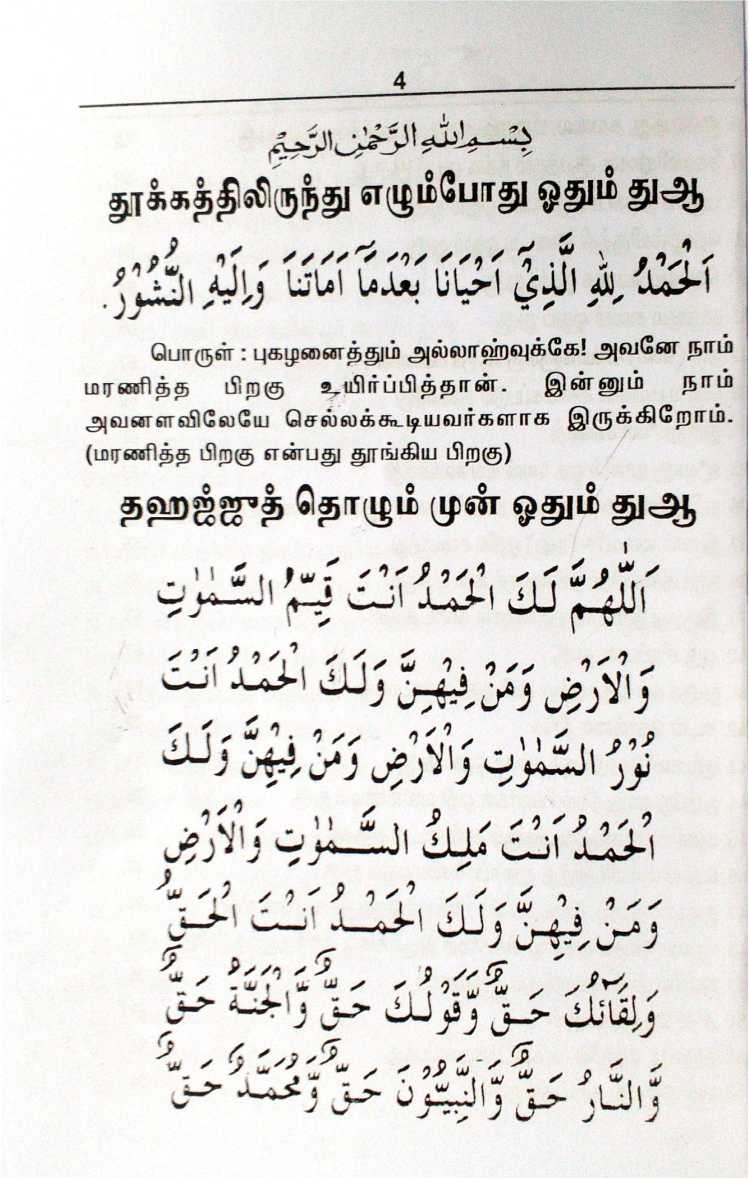 4
بِسْمِ اللهِ الرَّحْمٰنِ الرَّحِيْمِ
தூக்கத்திலிருந்து எழும்போது ஓதும் துஆ
اَلْحَمْدُ لِلّٰهِ الَّذِيْٓ اَحْيَانَا بَعْدَمَآ اَمَاتَنَا وَاِلَيْهِ النُّشُوْرُ.
பொருள் : புகழனைத்தும் அல்லாஹ்வுக்கே! அவனே நாம்
மரணித்த பிறகு உயிர்ப்பித்தான். இன்னும் நாம்
அவனளவிலேயே செல்லக்கூடியவர்களாக இருக்கிறோம்.
(மரணித்த பிறகு என்பது தூங்கிய பிறகு)
தஹஜ்ஜுத் தொழும் முன் ஓதும் துஆ
اَللّٰهُمَّ لَكَ الْحَمْدُ اَنْتَ قَيِّمُ السَّمٰوٰتِ
وَالْاَرْضِ وَمَنْ فِيْهِنَّ وَلَكَ الْحَمْدُ اَنْتَ
نُوْرُ السَّمٰوٰتِ وَالْاَرْضِ وَمَنْ فِيْهِنَّ وَلَكَ
الْحَمْدُ اَنْتَ مَلِكُ السَّمٰوٰتِ وَالْاَرْضِ
وَمَنْ فِيْهِنَّ وَلَكَ الْحَمْدُ اَنْتَ الْحَقُّ
وَلِقَآئُكَ حَقٌّ وَّقَوْلُكَ حَقٌّ وَّالْجَنَّةُ حَقٌّ
وَّالنَّارُ حَقٌّ وَّالنَّبِيُّوْنَ حَقٌّ وَّمُحَمَّدٌ حَقٌّ